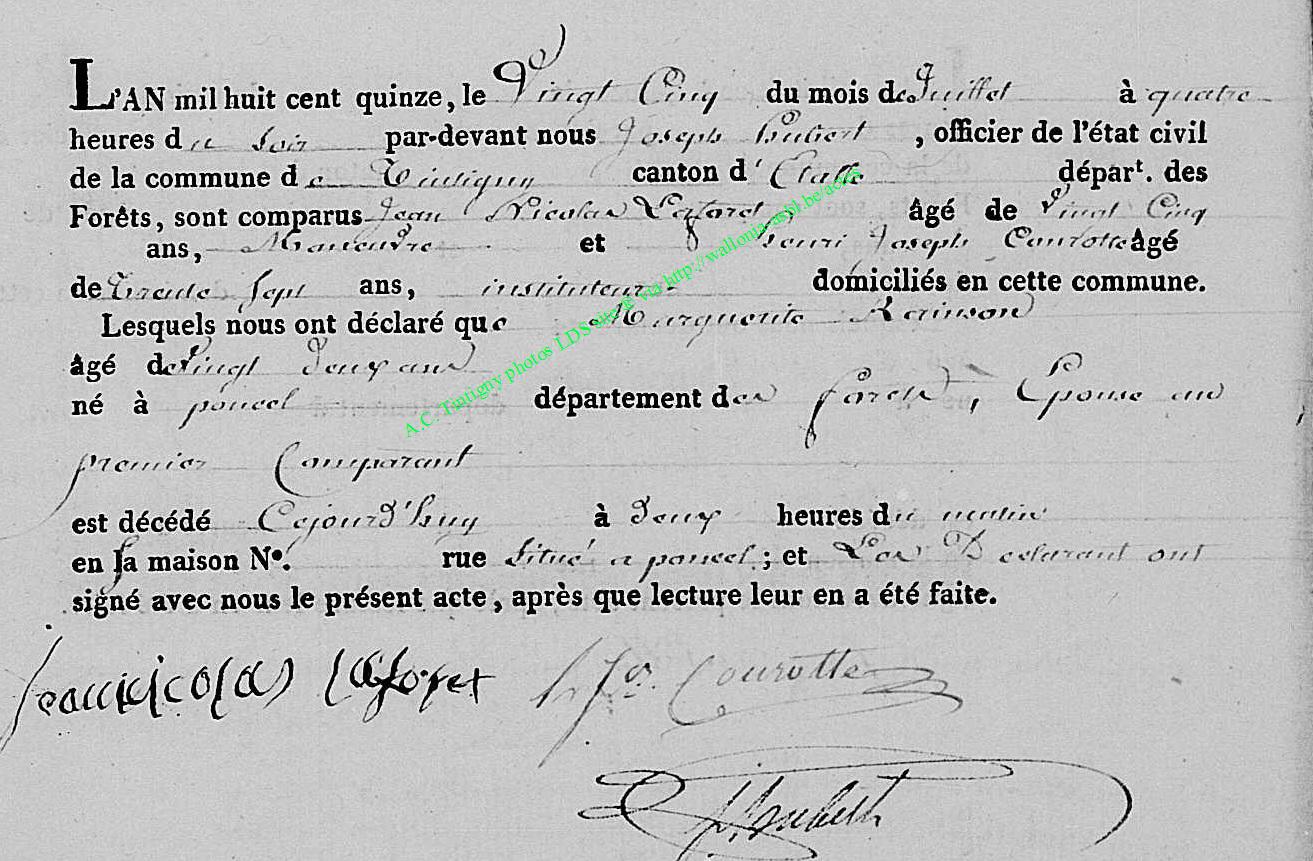 L'AN mil huit cent quinze, le Vingt Cinq du mois de Juillet à quatre
heures du Soir par-devant nous Joseph hubert, officier de l'état civil
de la commune de Tintigny canton d'Etalle départ. des
Forêts, sont comparus Jean Nicolas Laforet, âgé de Vingt Cinq
ans, Manœuvre et henri Joseph Courotte âgé
de trente Sept ans, instituteur domiciliés en cette commune.
Lesquels nous ont déclaré que Marguerite Rainson
âgé de Vingt Deux ans
né à poncel département des forets, Epouse au
premier Comparant
est décédé Cejourd'huy à Deux heures du matin
en sa maison N°. rue Situé a poncel; et Les Declarant ont
signé avec nous le présent acte, après que lecture leur en a été faite.
jean nicolas laforet h Jos. Courotte
J. hubert
A.C. Tintigny photos LDS site & via http://wallonia-asbl.be/actes